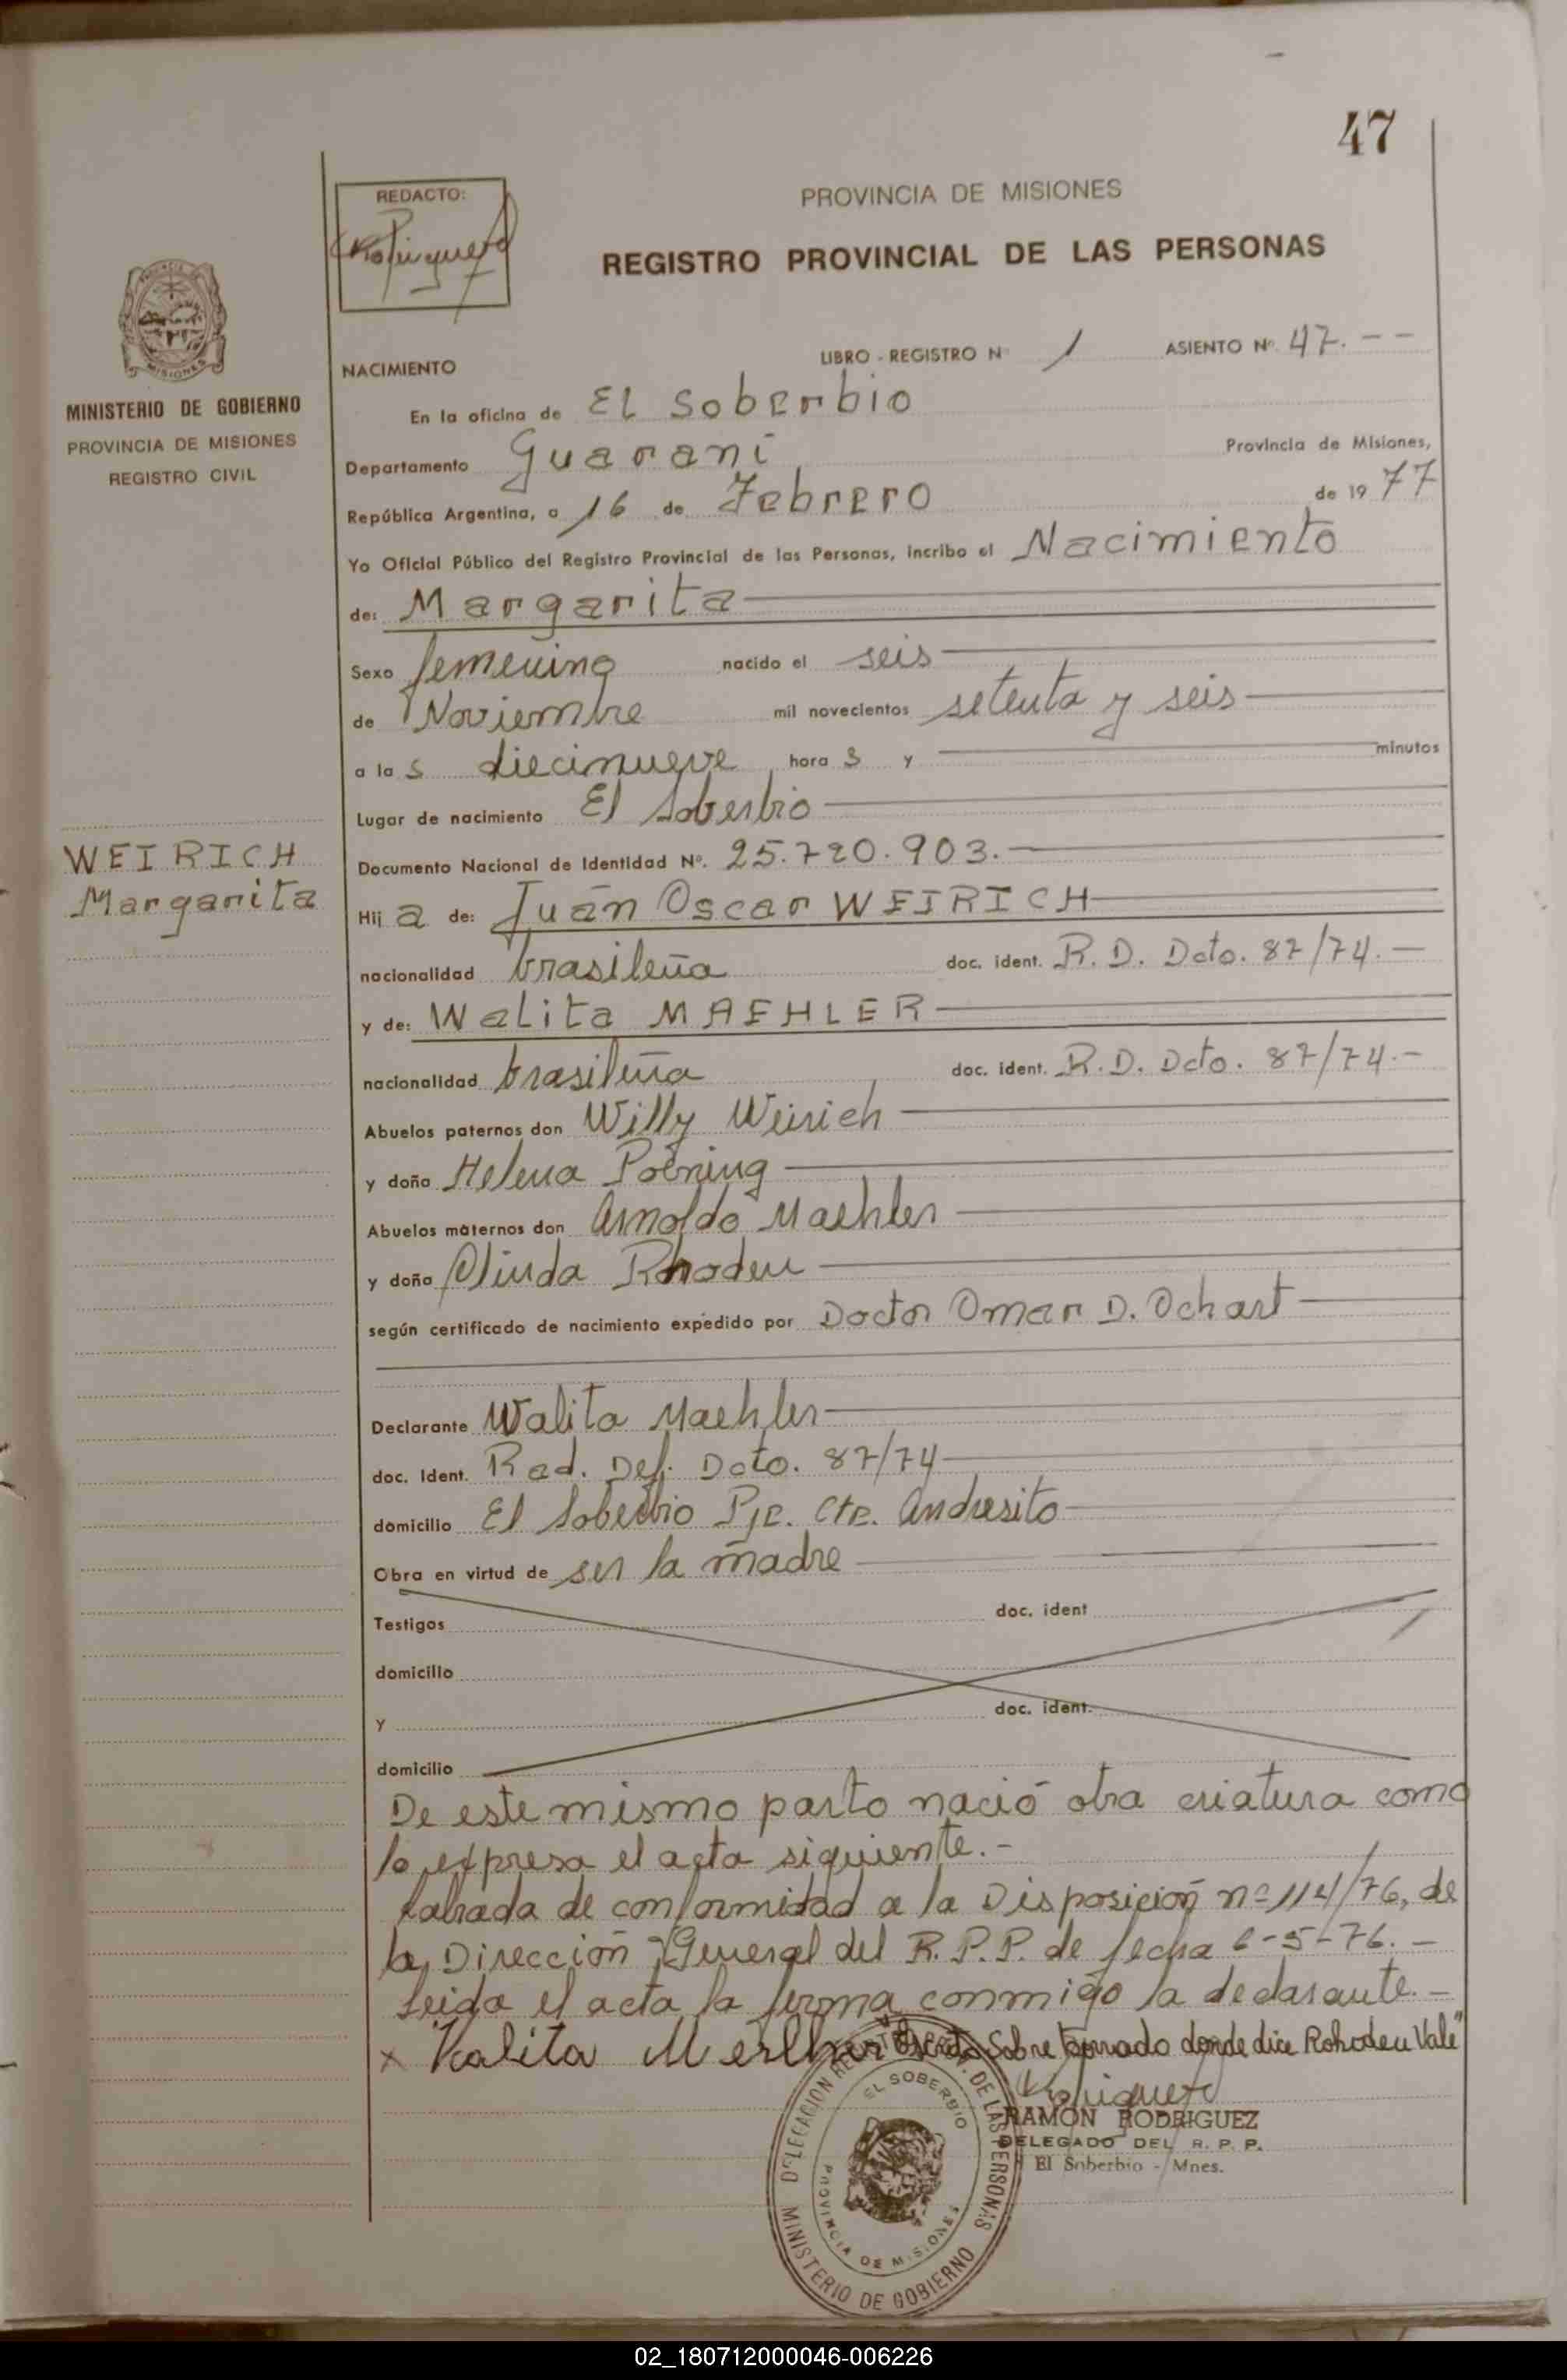 47
REDACTO:
PROVINCIA DE MISIONES
REGISTRO PROVINCIAL DE LAS PERSONAS
MINISTERIO DE GOBIERNO
PROVINCIA DE MISIONES
REGISTRO CIVIL
NACIMIENTO LIBRO - REGISTRO Nº 1 ASIENTO Nº 47.--
En la oficina de El Soberbio
Departamento Guaraní Provincia de Misiones,
República Argentina, a 16 de Febrero de 1977
Yo Oficial Público del Registro Provincial de las Personas, incribo el Nacimiento
de: Margarita
Sexo femenino nacido el seis
de Noviembre mil novecientos setenta y seis
a las diecinueve horas y minutos
Lugar de nacimiento El Soberbio
WEIRICH
Margarita
Documento Nacional de Identidad Nº. 25.720.903.
Hija de: Juan Oscar WEIRICH
nacionalidad brasileña doc. ident. R. D. Dcto. 87/74.-
y de: Walita MAEHLER
nacionalidad brasileña doc. ident. R. D. Dcto. 87/74.-
Abuelos paternos don Willy Weirich
y doña Helena
Abuelos maternos don Arnoldo Maehler
y doña Olinda Rhoden
según certificado de nacimiento expedido por Doctor Omar D. Ochart
Declarante Walita Maehler
doc. Ident. Rad. Def. Dcto. 87/74
domicilio El Soberbio Pje. Cte. Andresito
Obra en virtud de ser la madre
Testigos doc. ident
domicilio
y doc. ident.
domicilio
De este mismo parto nació otra criatura como
lo expresa el acta siguiente.-
Labrada de conformidad a la Disposición nº 114/76, de
la Dirección General del R.P.P. de fecha 6-5-76.-
Leida el acta la firma conmigo la declarante.-
x Valita "Escrito Sobre borrado donde dice Rohoden Vale"
RAMON RODRIGUEZ
DELEGADO DEL R. P. P.
El Soberbio - Mnes.
DELEGACION REGISTRO PROV. DE LAS PERSONAS
EL SOBERBIO
PROVINCIA DE MISIONES
MINISTERIO DE GOBIERNO
02_180712000046-006226